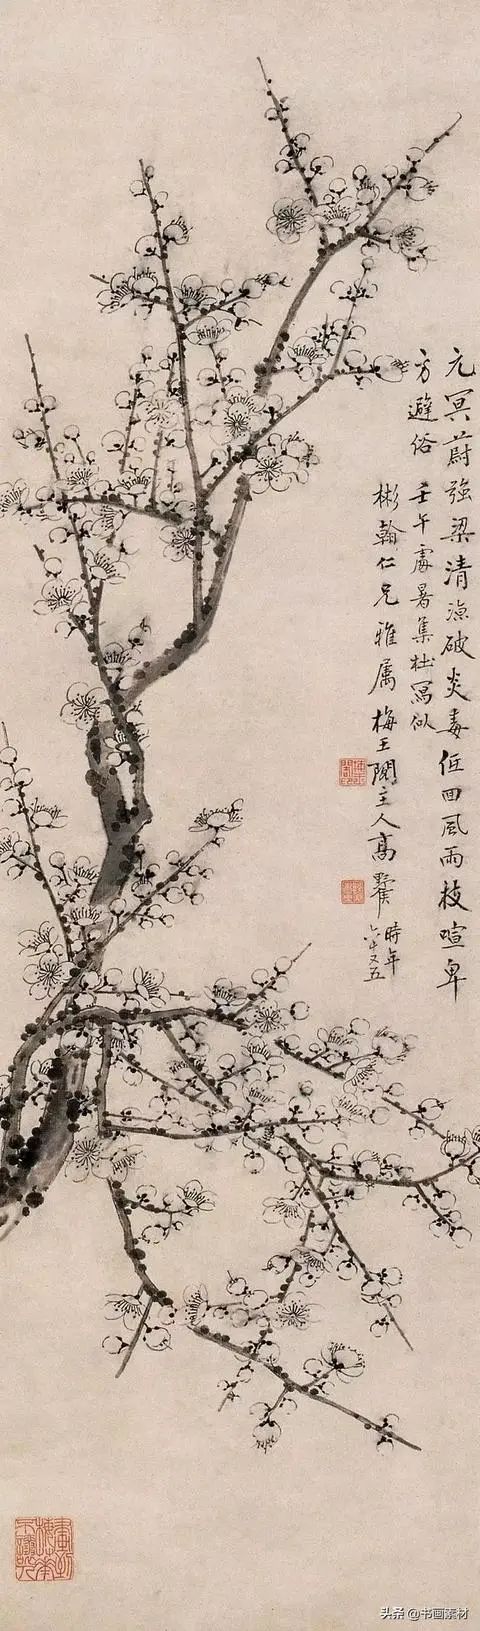 元冥蔚強梁清涼破炎毒低回風雨枝喧卑
方避俗 壬午處暑集杜寫似
彬翰仁兄雅屬 梅王閣主人高野侯
時年
六十又五
畫到梅花不讓人
头条@书画素材